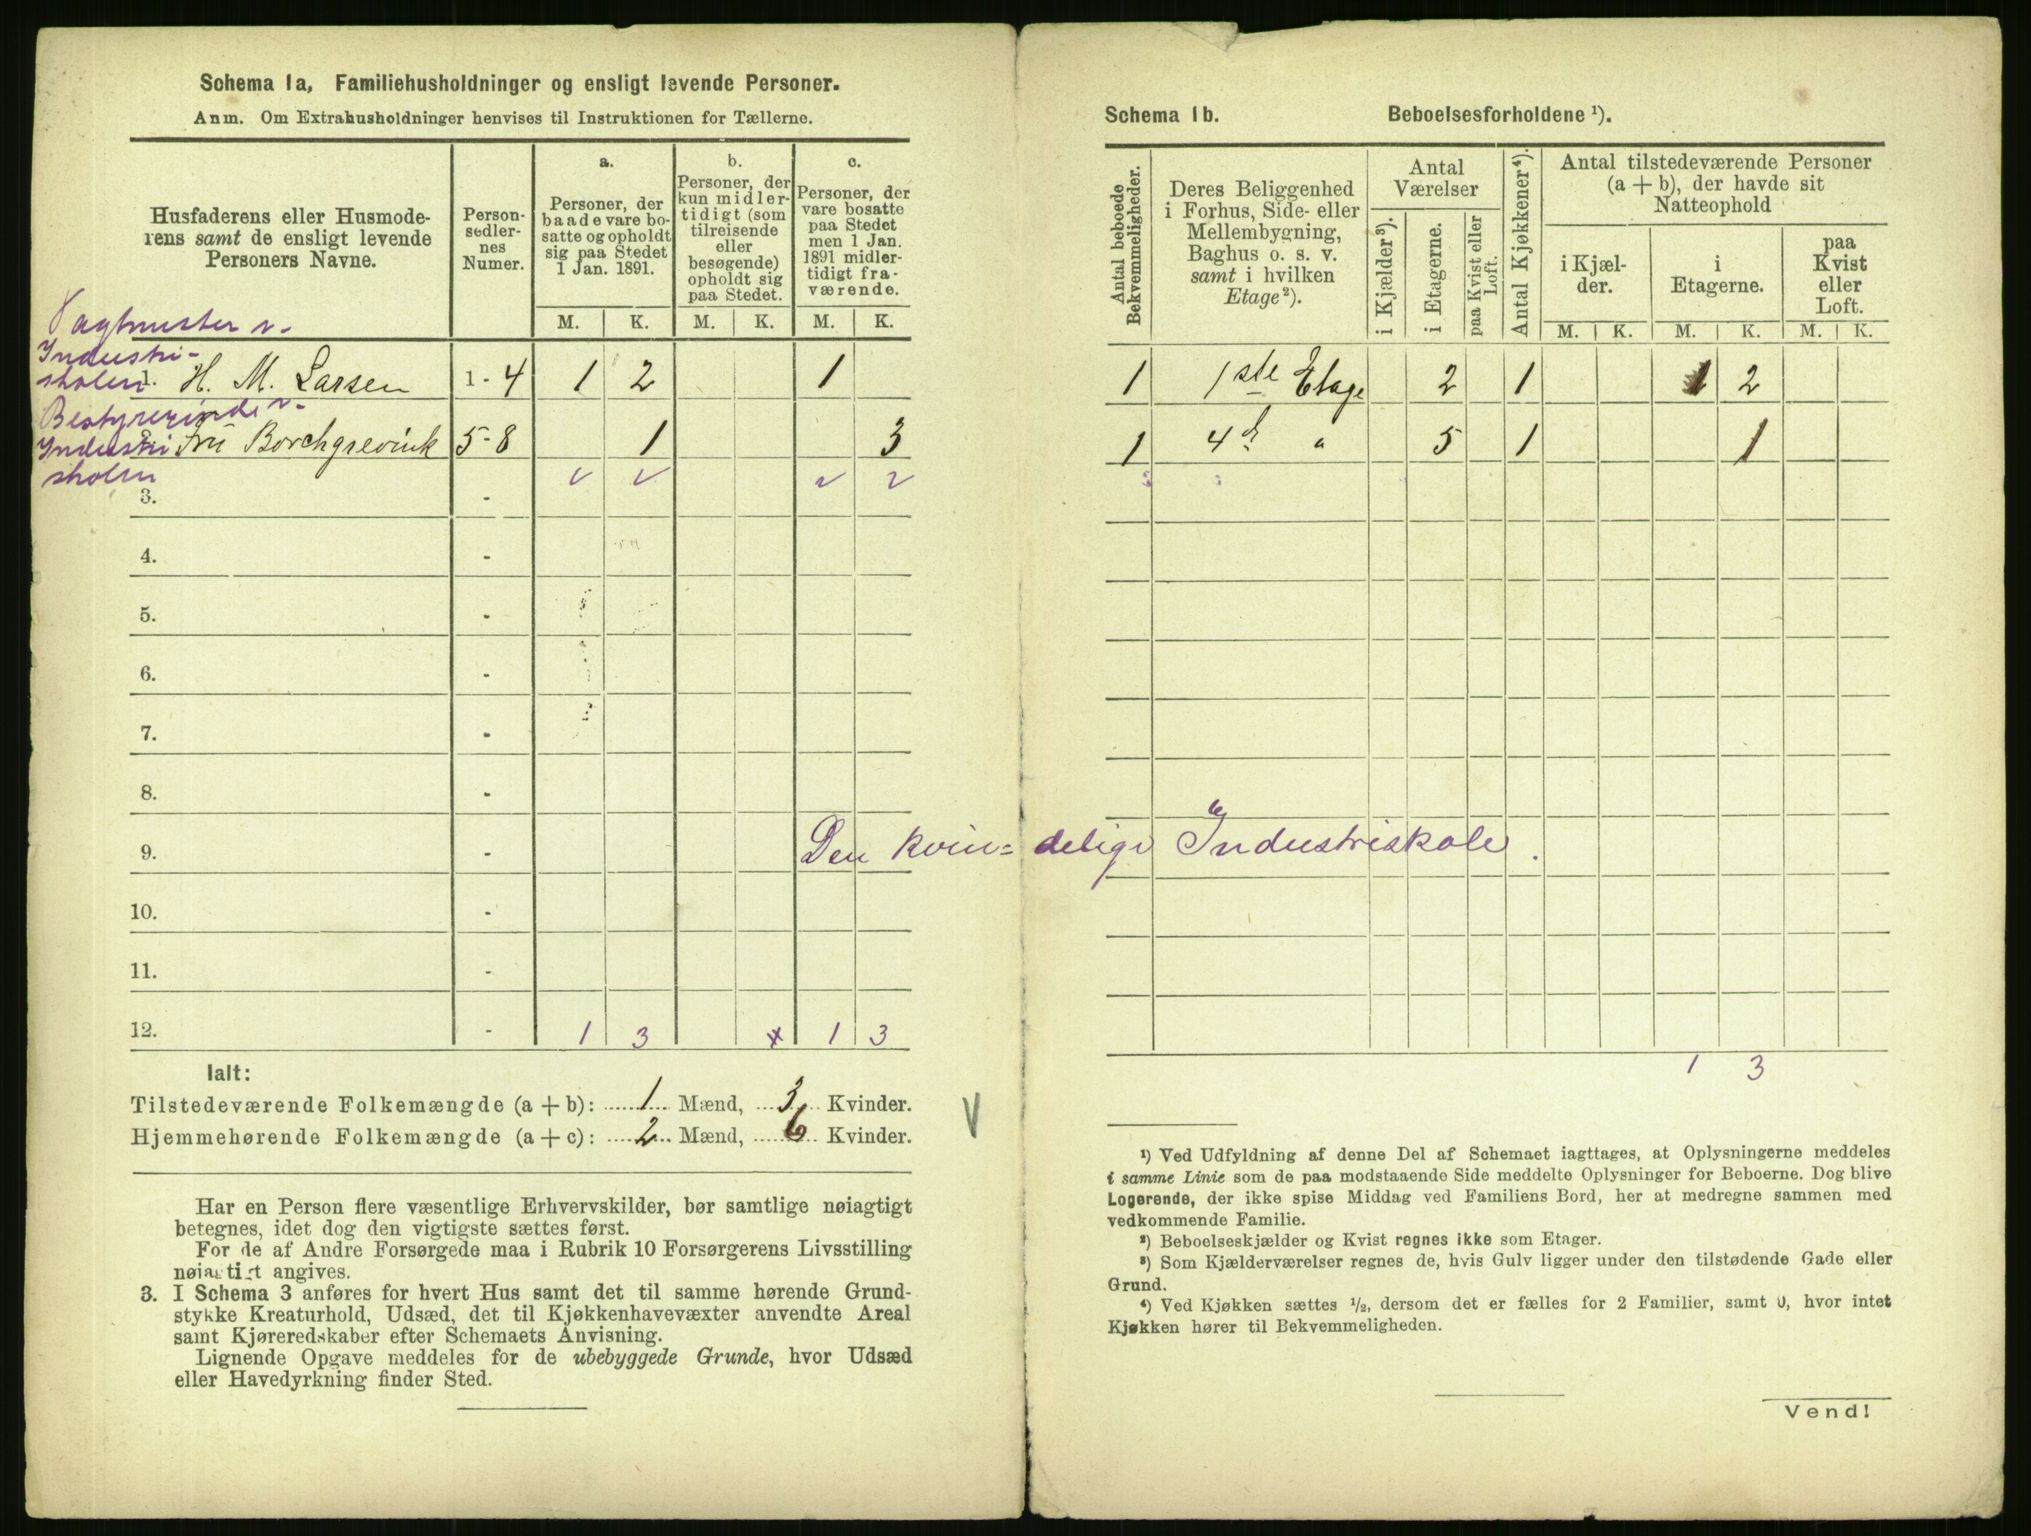 Schema 1a, Familiehusholdninger og ensligt levende Personer.
Anm. Om Extrahusholdninger henvises til Instruktionen for Tællerne.
Husfaderens eller Husmode-
rens samt de ensligt levende
Personers Navne.
Person-
sedler-
nes
Numer.
a.
Personer, der
baade vare bo-
satte og opholdt
sig paa Stedet
1 Jan. 1891.
b.
Personer, der
kun midler-
tidigt (som
tilreisende
eller
besøgende)
opholdt sig
paa Stedet.
c.
Personer, der
vare bosatte
paa Stedet
men 1 Jan.
1891 midler-
tidigt fra-
værende.
M. K. M. K. M. K.
Vagtmester v.
Industri-
skolen
1. H. M. Larsen 1 - 4 1 2 1
Bestyrerinde v.
Industri
skolen
2. Fru Borchgrevink 5 - 8 1 3
3. -
4. -
5. -
6. -
7. -
8. -
9. - Den kvin=
10. -
11. -
12. - 1 3 x 1 3
Ialt:
Tilstedeværende Folkemængde (a + b): 1 Mænd, 3 Kvinder.
Hjemmehørende Folkemængde (a + c): 2 Mænd, 6 Kvinder.
Har en Person flere væsentlige Erhvervskilder, bør samtlige nøiagtigt
betegnes, idet dog den vigtigste sættes først.
For de af Andre Forsørgede maa i Rubrik 10 Forsørgerens Livsstilling
nøiagtigt angives.
3. I Schema 3 anføres for hvert Hus samt det til samme hørende Grund-
stykke Kreaturhold, Udsæd, det til Kjøkkenhavevæxter anvendte Areal
samt Kjøreredskaber efter Schemaets Anvisning.
Lignende Opgave meddeles for de ubebyggede Grunde, hvor Udsæd
eller Havedyrkning finder Sted.
Schema 1b. Beboelsesforholdene ¹).
Antal beboede
Bekvemmeligheder.
Deres Beliggenhed
i Forhus, Side- eller
Mellembygning,
Baghus o. s. v.
samt i hvilken
Etage ²).
Antal
Værelser
i Kjælder ³).
i Etagerne.
paa Kvist eller
Loft.
Antal Kjøkkener ⁴).
Antal tilstedeværende Personer
(a + b), der havde sit
Natteophold
i Kjæl-
der.
i
Etagerne.
paa
Kvist
eller
Loft.
M. K. M. K. M. K.
1 1ste Etage 2 1 1 2
1 4d " 5 1 1
delige Industriskole.
1 3
¹) Ved Udfyldning af denne Del af Schemaet iagttages, at Oplysningerne meddeles
i samme Linie som de paa modstaaende Side meddelte Oplysninger for Beboerne. Dog blive
Logerende, der ikke spise Middag ved Familiens Bord, her at medregne sammen med
vedkommende Familie.
²) Beboelseskjælder og Kvist regnes ikke som Etager.
³) Som Kjælderværelser regnes de, hvis Gulv ligger under den tilstødende Gade eller
Grund.
⁴) Ved Kjøkken sættes ½, dersom det er fælles for 2 Familier, samt 0, hvor intet
Kjøkken hører til Bekvemmeligheden.
Vend!